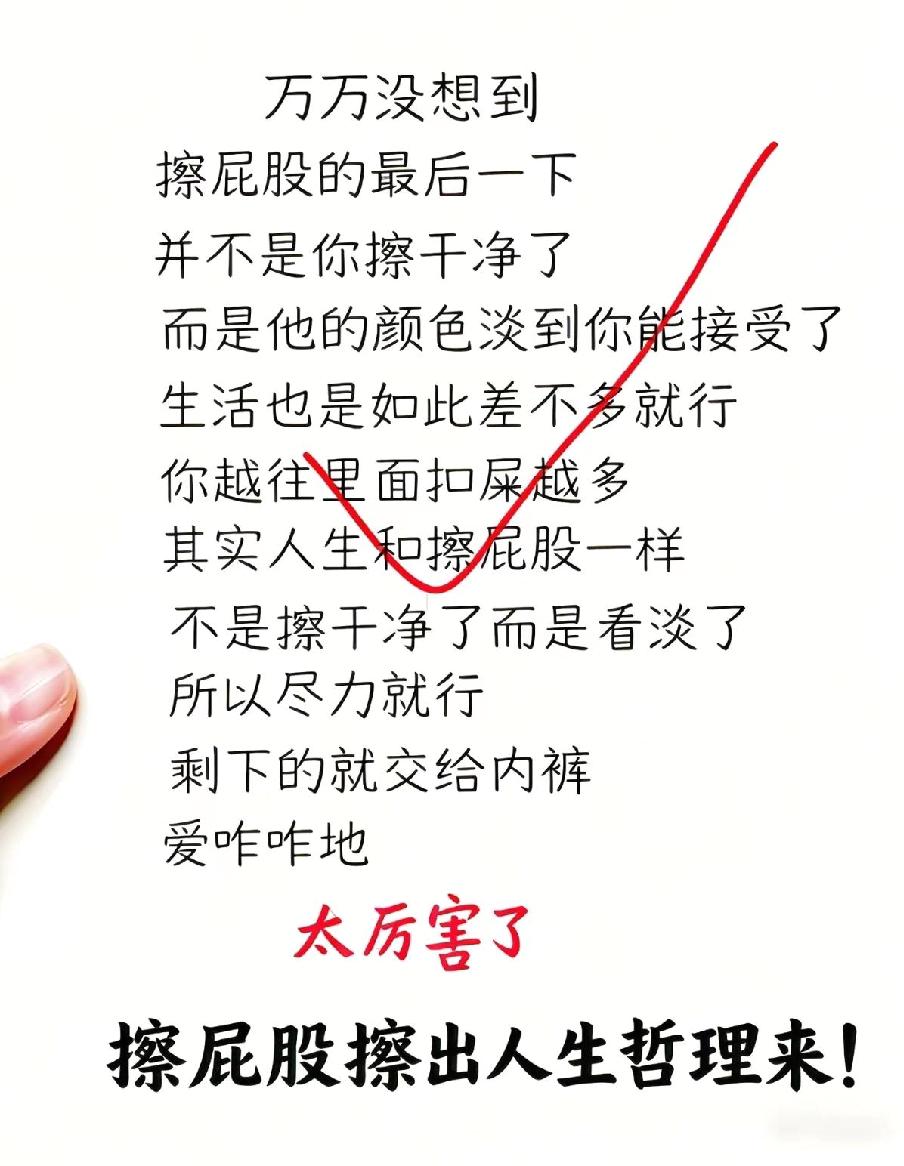 万万没想到
擦屁股的最后一下
并不是你擦干净了
而是他的颜色淡到你能接受了
生活也是如此差不多就行
你越往里面扣屎越多
其实人生和擦屁股一样
不是擦干净了而是看淡了
所以尽力就行
剩下的就交给内裤
爱咋咋地
太厉害了
擦屁股擦出人生哲理来！